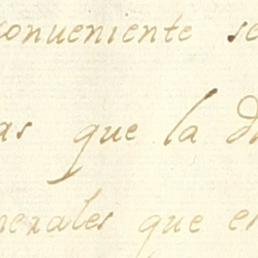 conueniente se
as que la d
nerales que en